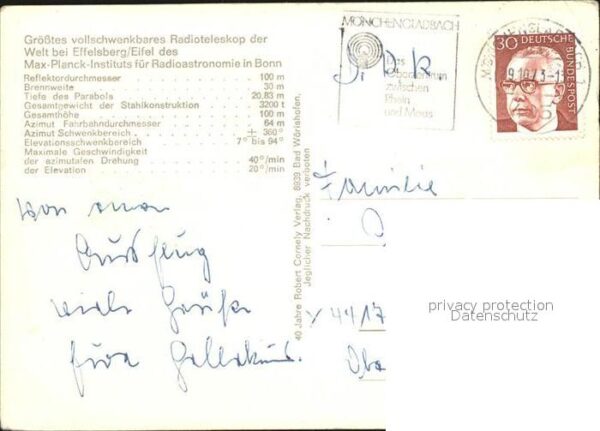 Größtes vollschwenkbares Radioteleskop der
Welt bei Effelsberg/Eifel des
Max-Planck-Instituts für Radioastronomie in Bonn
Reflektordurchmesser 100 m
Brennweite 30 m
Tiefe des Parabols 20,83 m
Gesamtgewicht der Stahlkonstruktion 3200 t
Gesamthöhe 100 m
Azimut Fahrbahndurchmesser 64 m
Azimut Schwenkbereich ± 360°
Elevationsschwenkbereich 7° bis 94°
Maximale Geschwindigkeit
der azimutalen Drehung 40°/min
der Elevation 20°/min
von
Ausflug
viele Grüße
40 Jahre Robert Cornely Verlag, 8939 Bad Wörishofen.
Jeglicher Nachdruck verboten
MÖNCHENGLADBACH
Das
Oberzentrum
zwischen
Rhein
und Maas
30 DEUTSCHE
BUNDESPOST
Familie
4417
privacy protection
Datenschutz